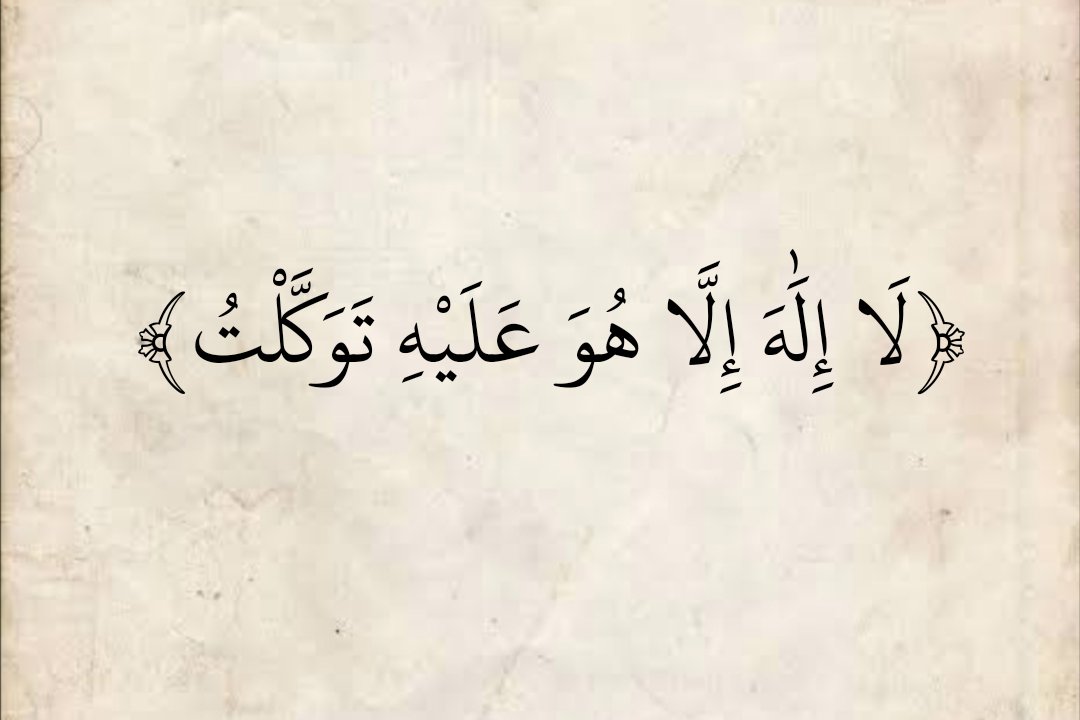 ﴿لَا إِلَٰهَ إِلَّا هُوَ عَلَيْهِ تَوَكَّلْتُ﴾